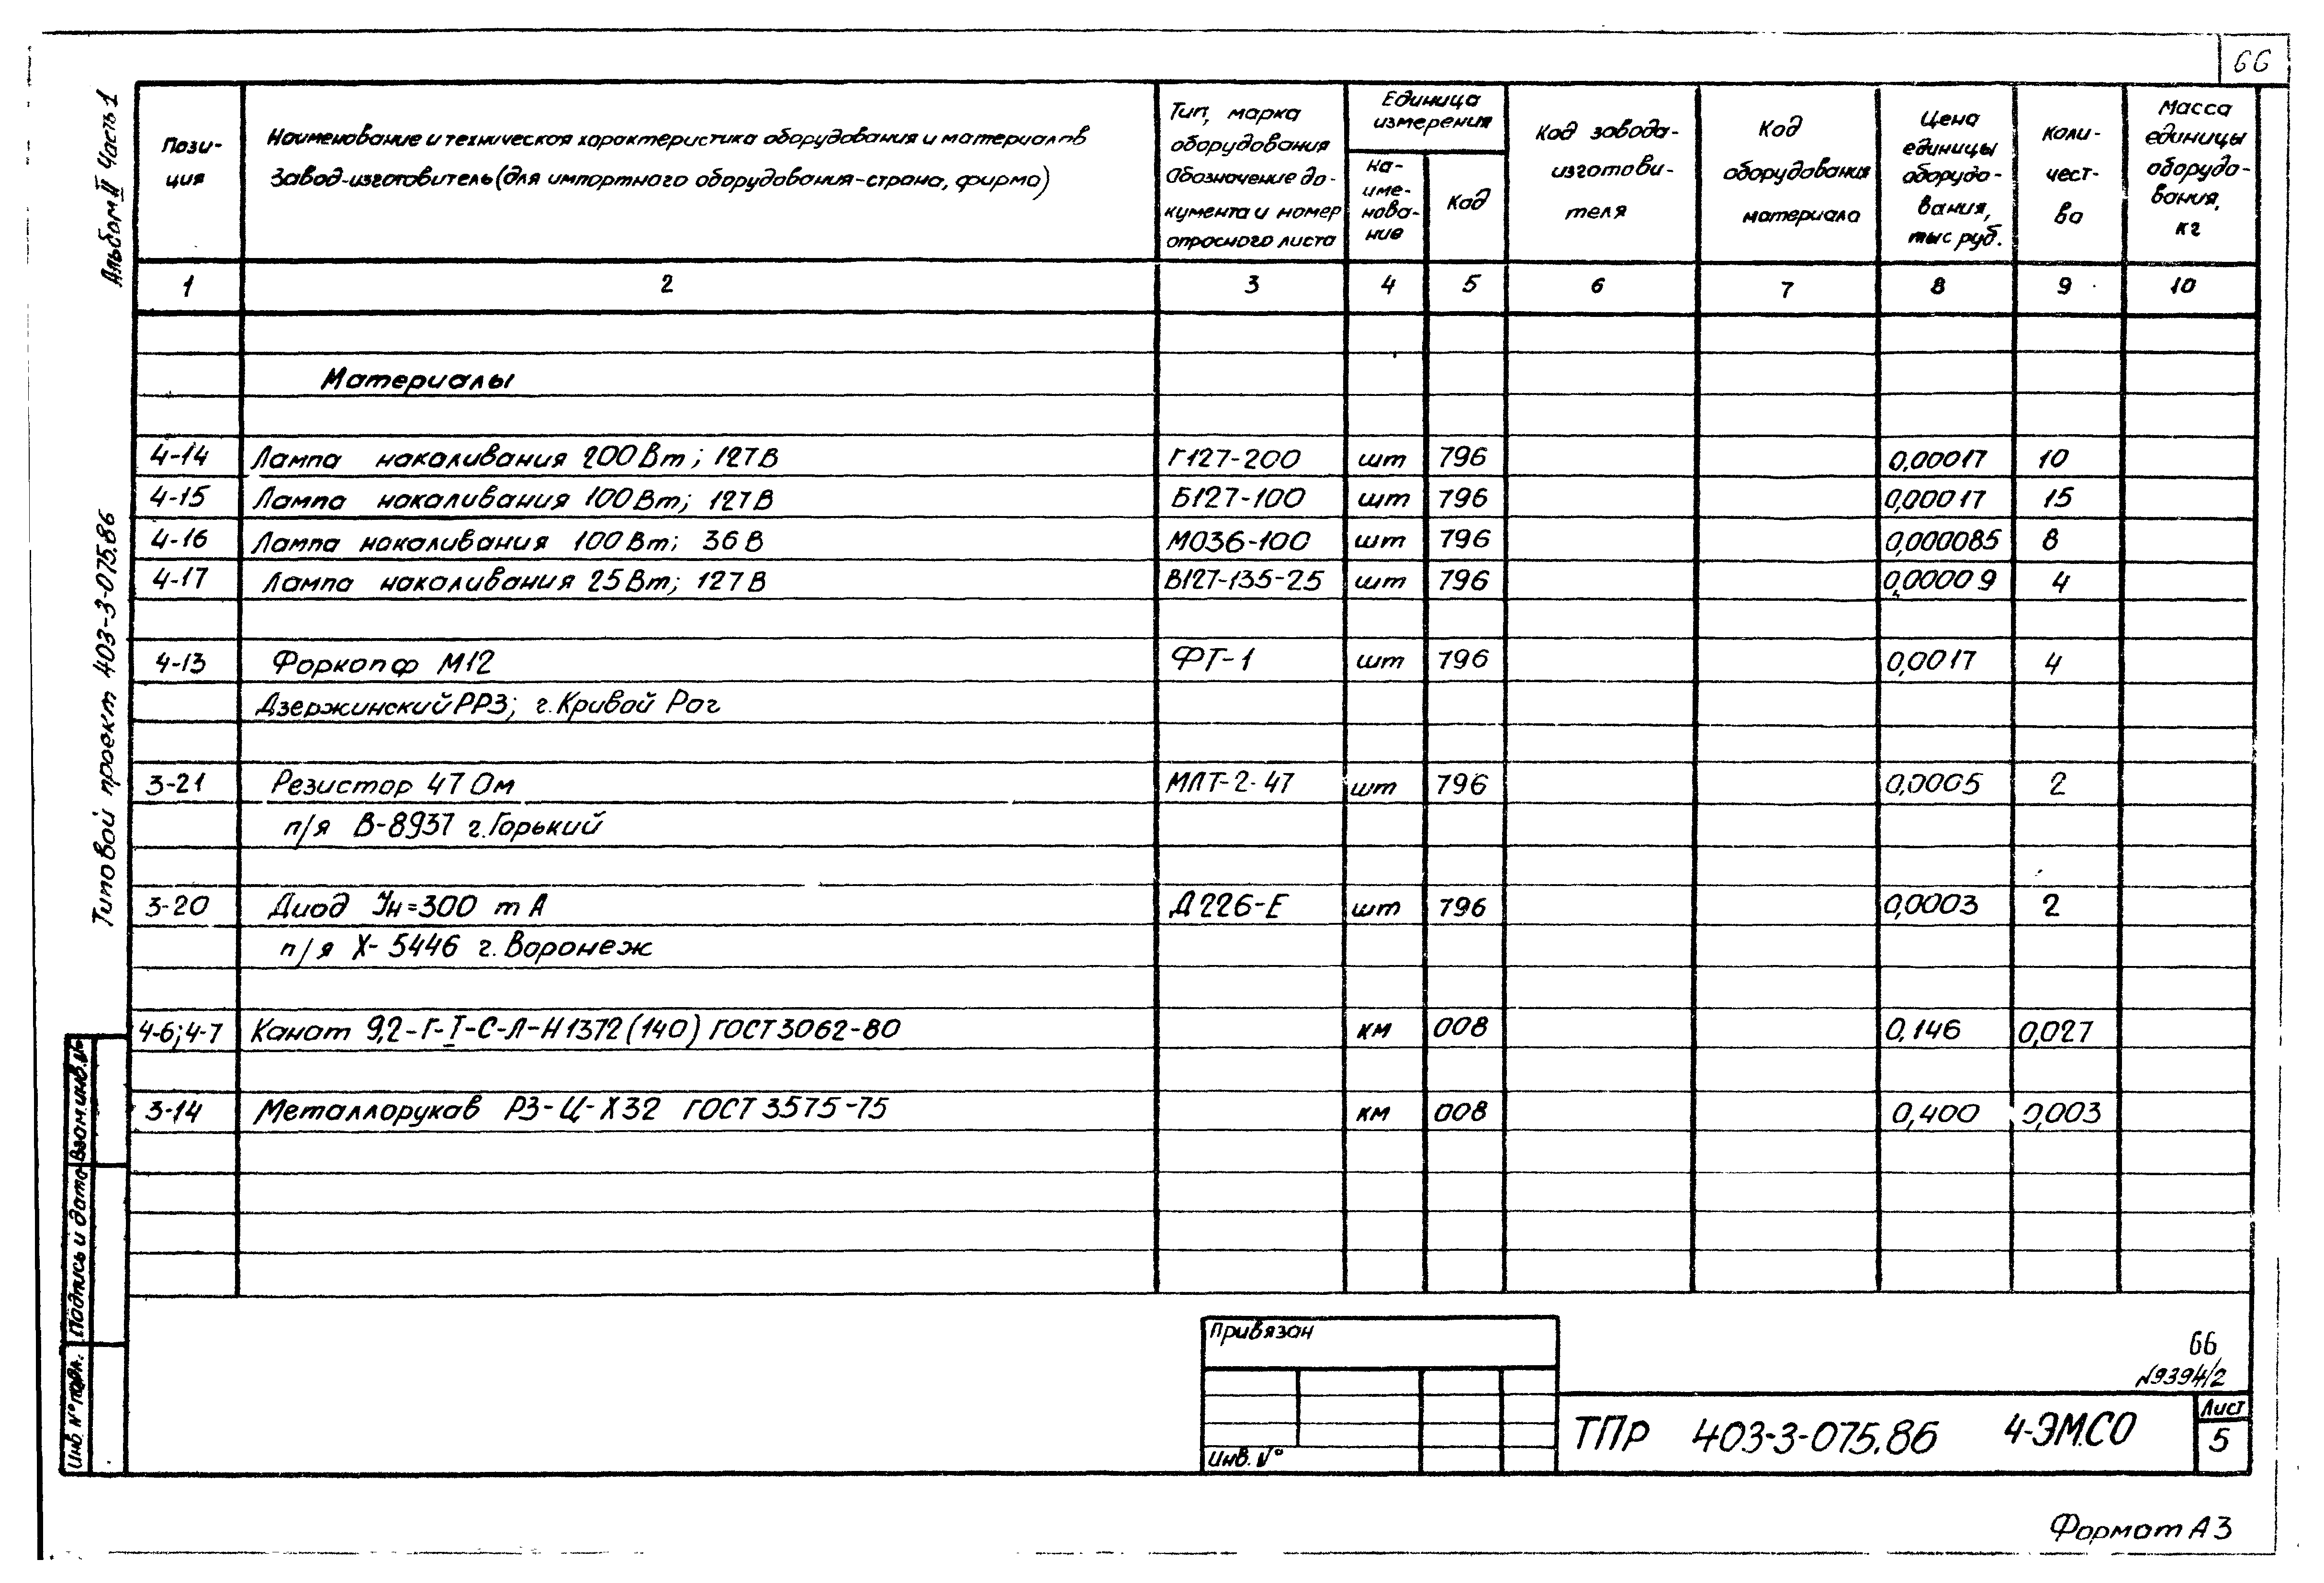 66
Альбом II Часть 1
Типовой проект 403-3-075.86
Пози-
ция
Наименование и техническая характеристика оборудования и материалов
Завод-изготовитель (для импортного оборудования-страна, фирма)
Тип, марка
оборудования
Обозначение до-
кумента и номер
опросного листа
Единица
измерения
На-
име-
нова-
ние
Код
Код завода-
изготови-
теля
Код
оборудования
материала
Цена
единицы
оборудо-
вания,
тыс руб.
Коли-
чест-
во
Масса
единицы
оборудо-
вания,
кг
1 2 3 4 5 6 7 8 9 10
Материалы
4-14 Лампа накаливания 200 Вт; 127 В Г127-200 шт 796 0,00017 10
4-15 Лампа накаливания 100 Вт; 127 В Б127-100 шт 796 0,00017 15
4-16 Лампа накаливания 100 Вт; 36 В МО36-100 шт 796 0,000085 8
4-17 Лампа накаливания 25 Вт; 127 В В127-135-25 шт 796 0,00009 4
4-13 Форкопф М12 ФТ-1 шт 796 0,0017 4
Дзержинский РРЗ; г. Кривой Рог
3-21 Резистор 47 Ом МЛТ-2-47 шт 796 0,0005 2
п/я В-8937 г. Горький
3-20 Диод Jн=300 mA Д226-Е шт 796 0,0003 2
п/я Х-5446 г. Воронеж
4-6; 4-7 Канат 9,2-Г-I-С-Л-Н1372(140) ГОСТ 3062-80 км 008 0,146 0,027
3-14 Металлорукав РЗ-Ц-Х32 ГОСТ 3575-75 км 008 0,400 0,003
Взам.инв.№
Подпись и дата
Инв. № подл.
Привязан
Инв. №
66
19394/2
ТПр 403-3-075.86 4-ЭМ.СО
Лист
5
Формат А3